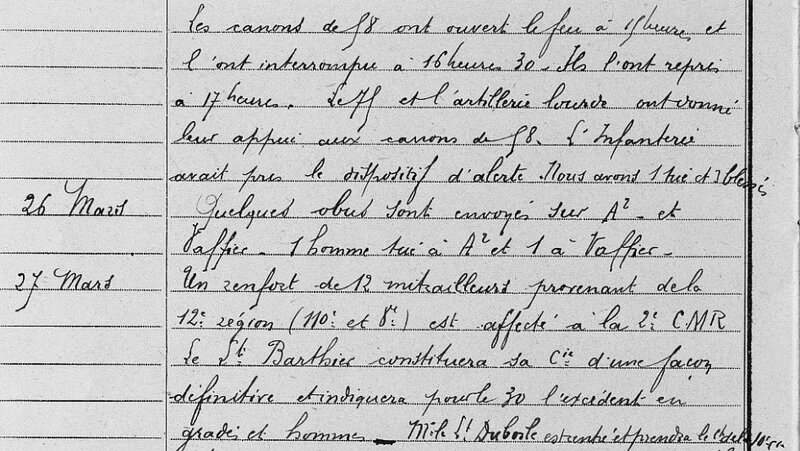 Les canons de 58 ont ouvert le feu à 15 heures et
l'ont interrompu à 16 heures 30 - Ils l'ont repris
à 17 heures. Le 75 et l'artillerie lourde ont donné
leur appui aux canons de 58. L'Infanterie
avait pris le dispositif d'alerte. Nous avons 1 tué et 3 blessés
26 Mars Quelques obus sont envoyés sur A2 - et
Vaffier - 1 homme tué à A2 et 1 à Vaffier -
27 Mars Un renfort de 12 mitrailleurs provenant de la
12e région (110e et 8e) est affecté à la 2e CMR
Le Lt Barthier constituera sa Cie d'une façon
définitive et indiquera pour le 30 l'excédent en
gradés et hommes - Mr le Lt est rentré et prendra le